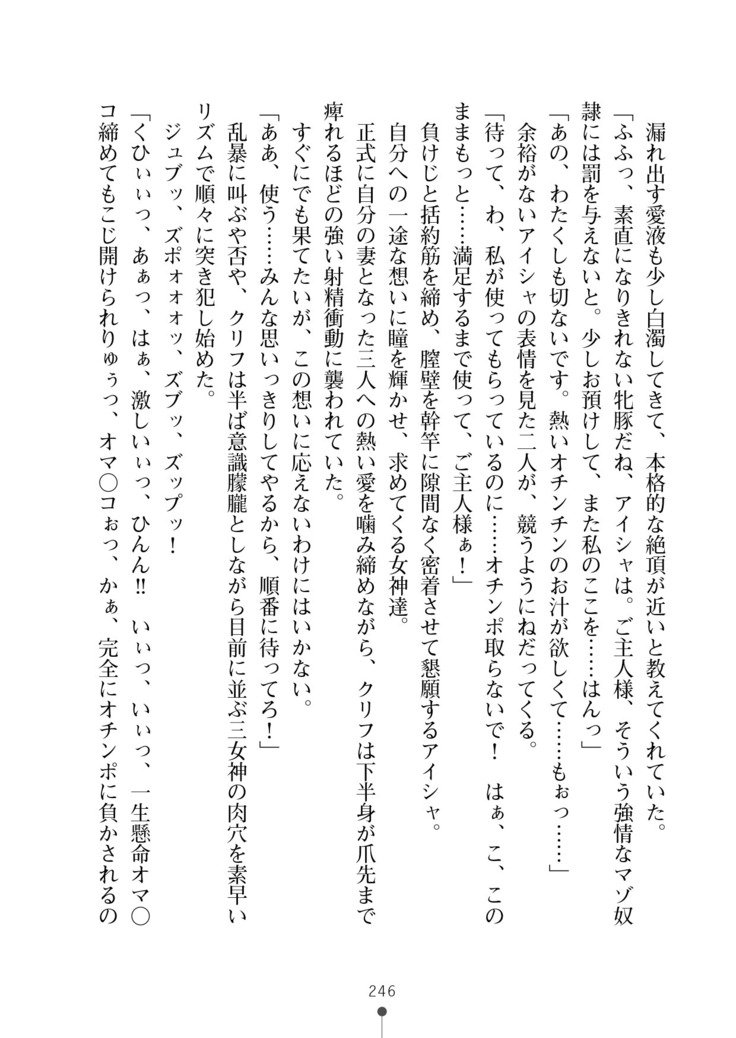 漏れ出す愛液も少し白濁してきて、本格的な絶頂が近いと教えてくれていた。
「ふふっ、素直になりきれない牝豚だね、アイシャは。ご主人様、そういう強情なマゾ奴
隷には罰を与えないと。少しお預けして、また私のここを……はんっ」
「あの、わたくしも切ないです。熱いオチンチンのお汁が欲しくて……もぉっ……」
余裕がないアイシャの表情を見た二人が、競うようにねだってくる。
「待って、わ、私が使ってもらっているのに……オチンポ取らないで！　はぁ、こ、この
ままもっと……満足するまで使って、ご主人様ぁ！」
負けじと括約筋を締め、膣壁を幹竿に隙間なく密着させて懇願するアイシャ。
自分への一途な想いに瞳を輝かせ、求めてくる女神達。
正式に自分の妻となった三人への熱い愛を噛み締めながら、クリフは下半身が爪先まで
痺れるほどの強い射精衝動に襲われていた。
すぐにでも果てたいが、この想いに応えないわけにはいかない。
「ああ、使う……みんな思いっきりしてやるから、順番に待ってろ！」
乱暴に叫ぶや否や、クリフは半ば意識朦朧としながら目前に並ぶ三女神の肉穴を素早い
リズムで順々に突き犯し始めた。
ジュブッ、ズポォォォッ、ズブッ、ズップッ！
「くひぃぃっ、あぁっ、はぁ、激しいぃっ、ひんん!!　いぃっ、いぃっ、一生懸命オマ〇
コ締めてもこじ開けられりゅうっ、オマ〇コぉっ、かぁ、完全にオチンポに負かされるの
246